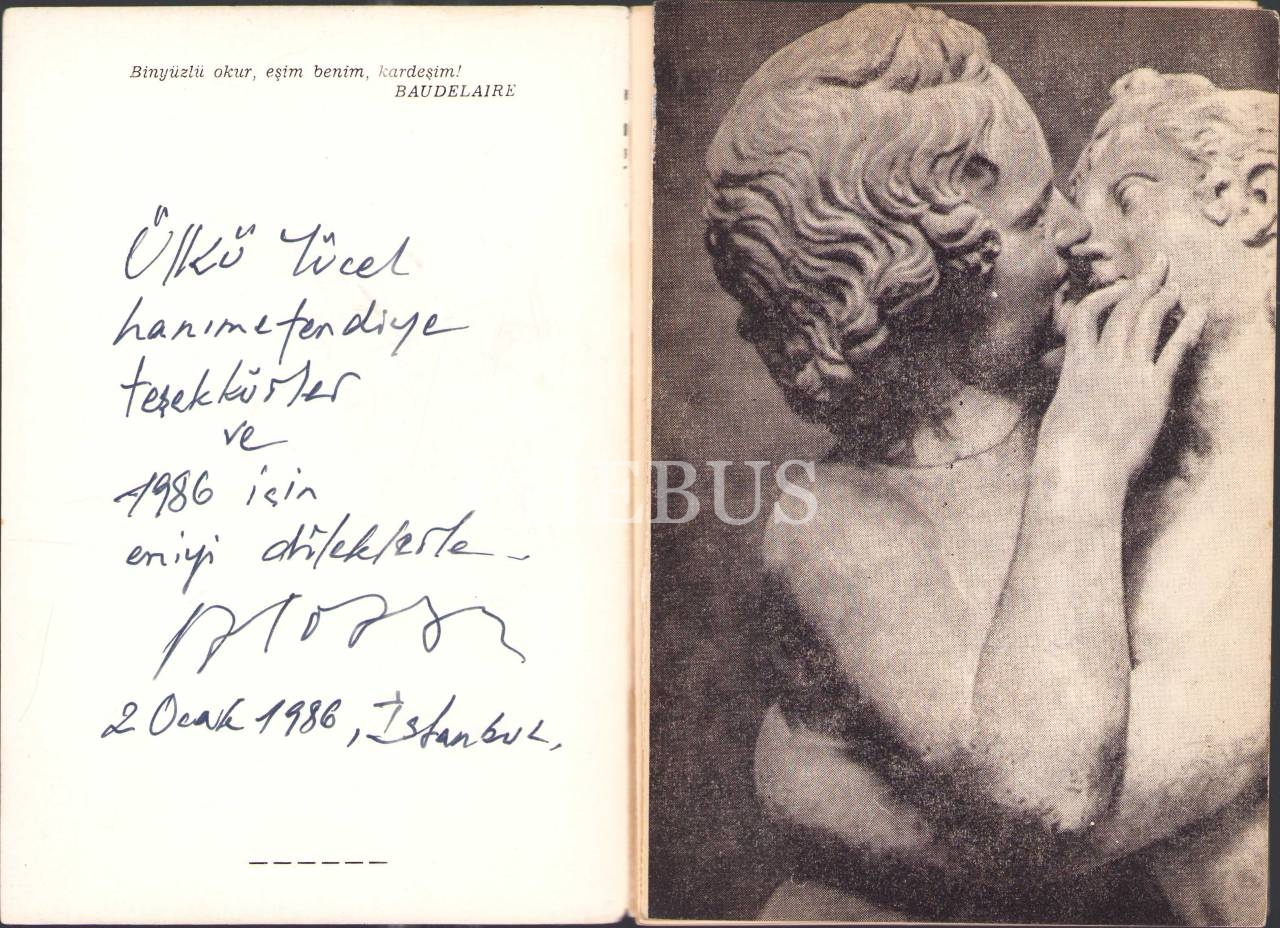 Binyüzlü okur, eşim benim, kardeşim!
BAUDELAIRE
Ülkü Yücel
hanımefendiye
teşekkürler
ve
1986 için
eniyi dileklerle
2 Ocak 1986, İstanbul,
EBUS